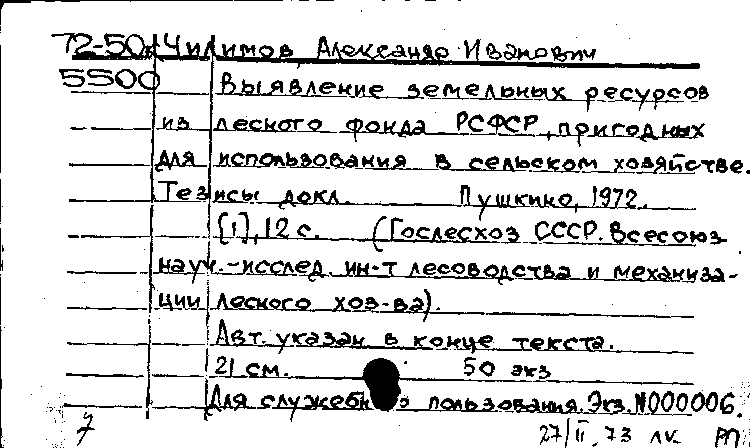 72-50д Чилимов Александр Иванович
5500 Выявление земельных ресурсов
из лесного фонда РСФСР, пригодных
для использования в сельском хозяйстве.
Тезисы докл. Пушкино, 1972.
[1], 12 с. (Гослесхоз СССР. Всесоюз
науч.-исслед. ин-т лесоводства и механиза-
ции лесного хоз-ва).
Авт. указан в конце текста.
21 см. 50 экз
Для служебного пользования. Экз. №000006.
27/II.73